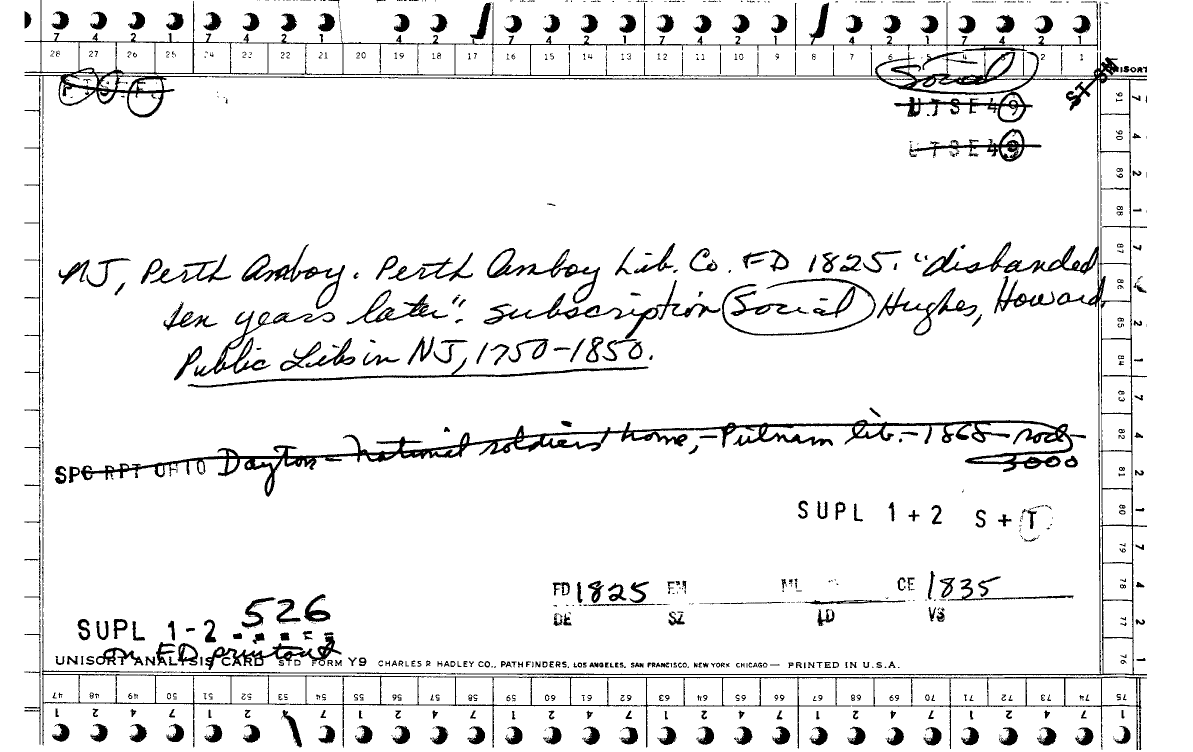 7 4 2 1 7 4 2 1 4 2 1 7 4 2 1 7 4 2 1 7 4 2 1 7 4 2 1
28 27 26 25 24 23 22 21 20 19 18 17 16 15 14 13 12 11 10 9 8 7 6 4 2 1
Social
UNISORT
ST SM
UTSE49
UTSE49
NJ, Perth Amboy. Perth Amboy Lib. Co. FD 1825. "disbanded
ten years later". subscription Social Hughes, Howard,
Public Libs in NJ, 1750-1850.
SPC RPT OHIO Dayton - National soldiers' home, - Putnam lib. - 1868 - socy
3000
SUPL 1+2 S+T
FD 1825 EM ML CE 1835
DE SZ LD VS
526
SUPL 1-2
on FD printout
UNISORT ANALYSIS CARD STD FORM Y9 CHARLES R HADLEY CO., PATHFINDERS, LOS ANGELES, SAN FRANCISCO, NEW YORK CHICAGO — PRINTED IN U.S.A.
91 90 89 88 87 86 85 84 83 82 81 80 79 78 77 76
7 4 2 1 7 4 2 1 7 4 2 1 7 4 2 1
47 48 49 50 51 52 53 54 55 56 57 58 59 60 61 62 63 64 65 66 67 68 69 70 71 72 73 74 75
1 2 4 7 1 2 4 7 1 2 4 7 1 2 4 7 1 2 4 7 1 2 4 7 1 2 4 7 1